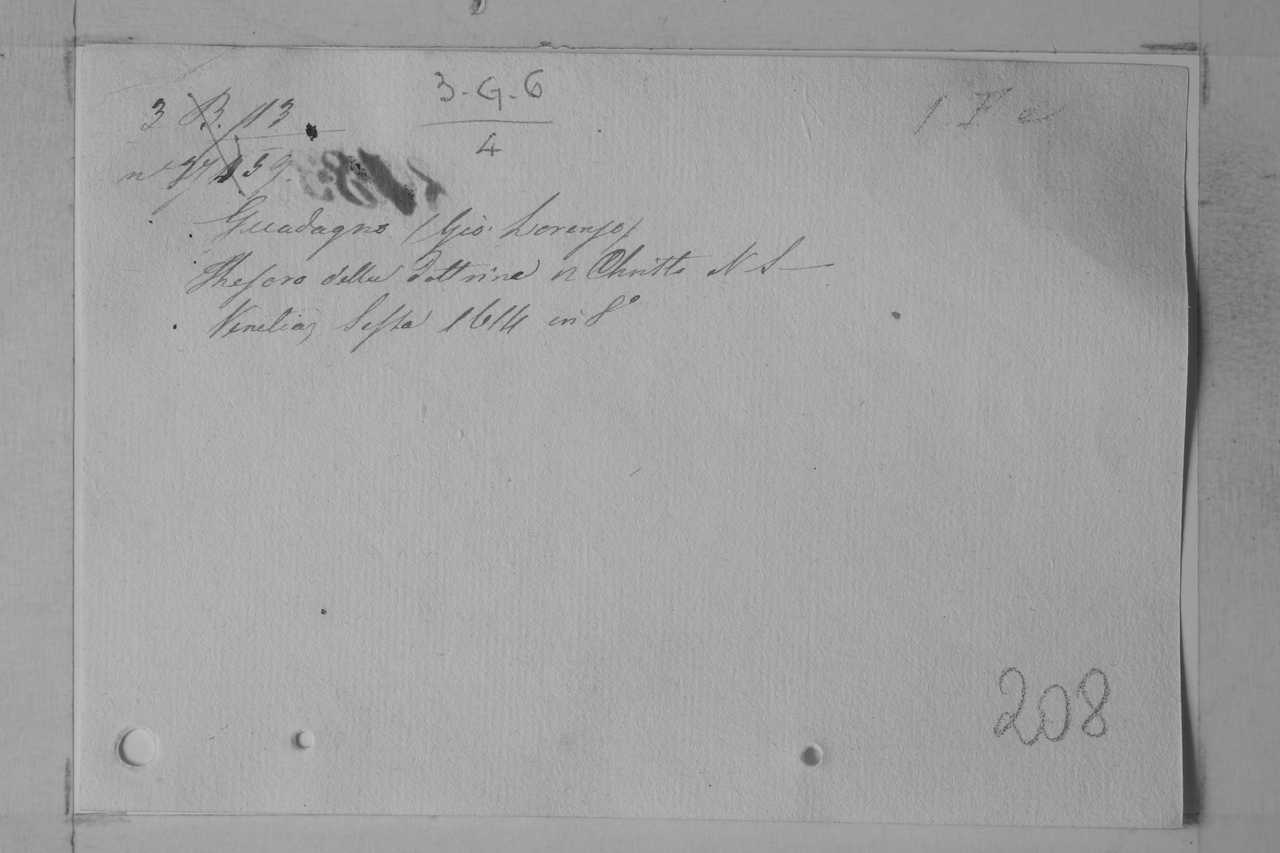 3 B. 13
3-G-6
4
Guadagno (Gio: Lorenzo)
Thesoro della dottrina di Christo N S
Venetia, Sessa 1614 in 8°
208